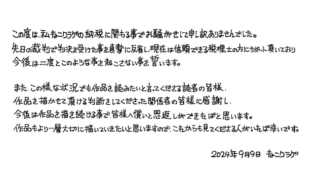 この度は、私ねこクラゲの納税に関する事でお騒がせして申し訳ありませんでした。
先日の裁判で判決を受けた事を真摯に反省し、現在は信頼できる税理士の方にサポート頂いており
今後は二度とこのような事を起こさない事を誓います。
また、この様な状況でも作品を読みたいと言ってくださる読者の皆様、
作品を描かせて頂ける判断をしてくださった関係者の皆様に感謝し、
今後は作品を描き続ける事で皆様へ償いと恩返しができればと思います。
作品をより一層大切に描いていきたいと思いますので、これからも見てくださる人がいれば幸いです。
2024年9月9日 ねこクラゲ